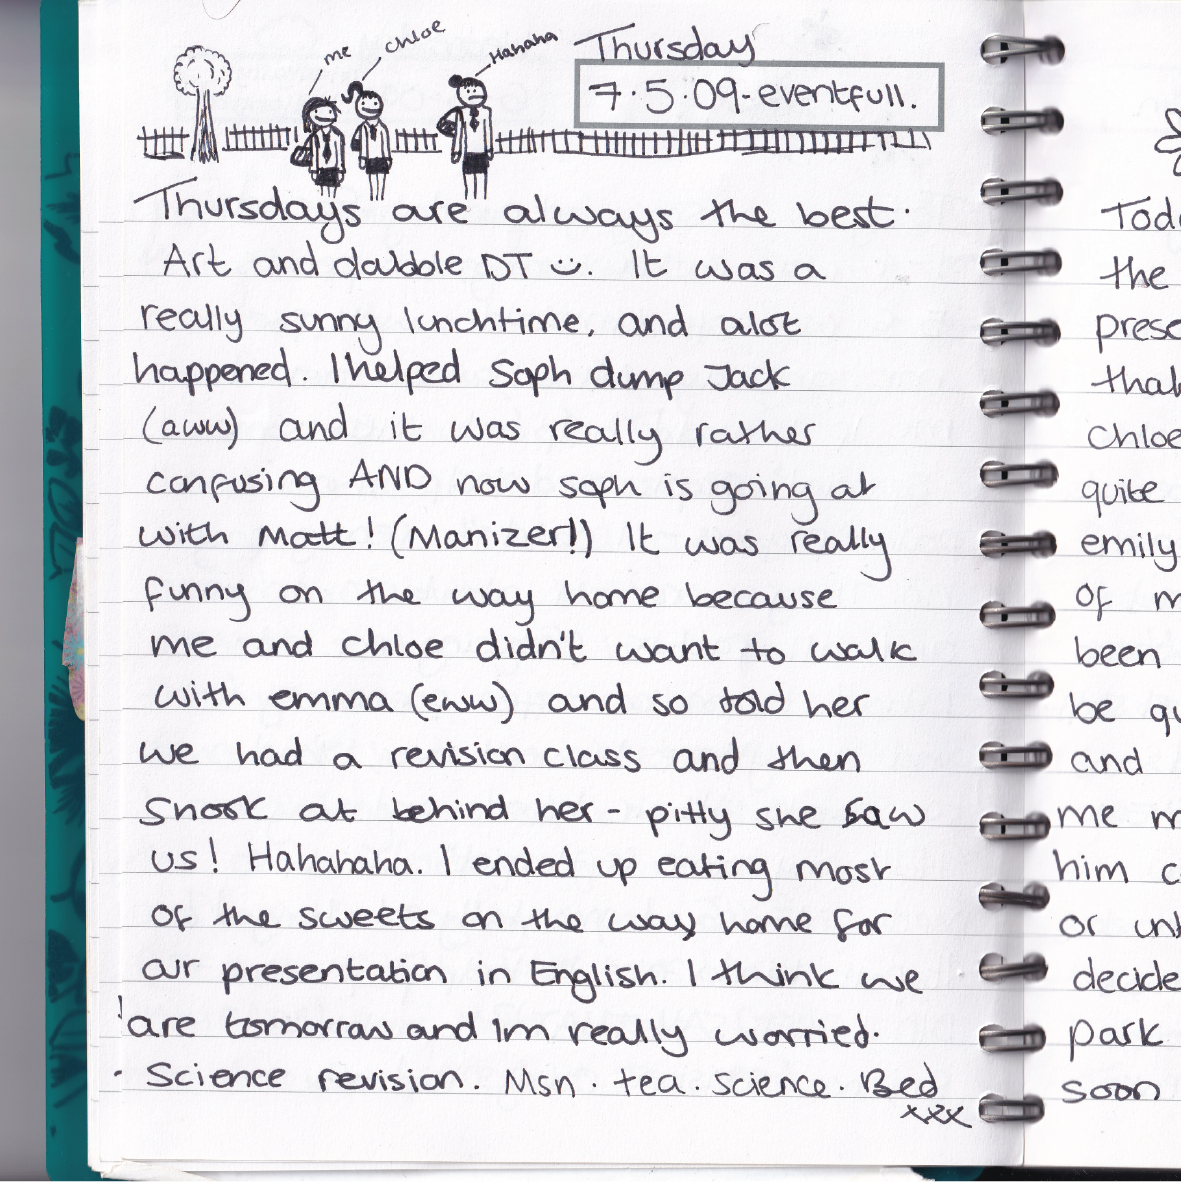 me
chloe
Hahaha
Thursday
7.5.09-eventfull.
Thursdays are always the best.
Art and dabble DT :). It was a
really sunny lunchtime, and alot
happened. I helped Soph dump Jack
(aww) and it was really rather
confusing AND now soph is going at
with Matt! (Manizer!!) It was really
funny on the way home because
me and chloe didn't want to walk
with emma (eww) and so told her
we had a revision class and then
snook at behind her - pitty she saw
us! Hahahaha. I ended up eating most
of the sweets on the way home for
our presentation in English. I think we
are tomorrow and Im really worried.
. Science revision. Msn. tea. science. Bed
xxx
Toda
the
prese
that
chloe
quite
emily
of m
been
be qu
and
me m
him c
or un
decide
park
soon